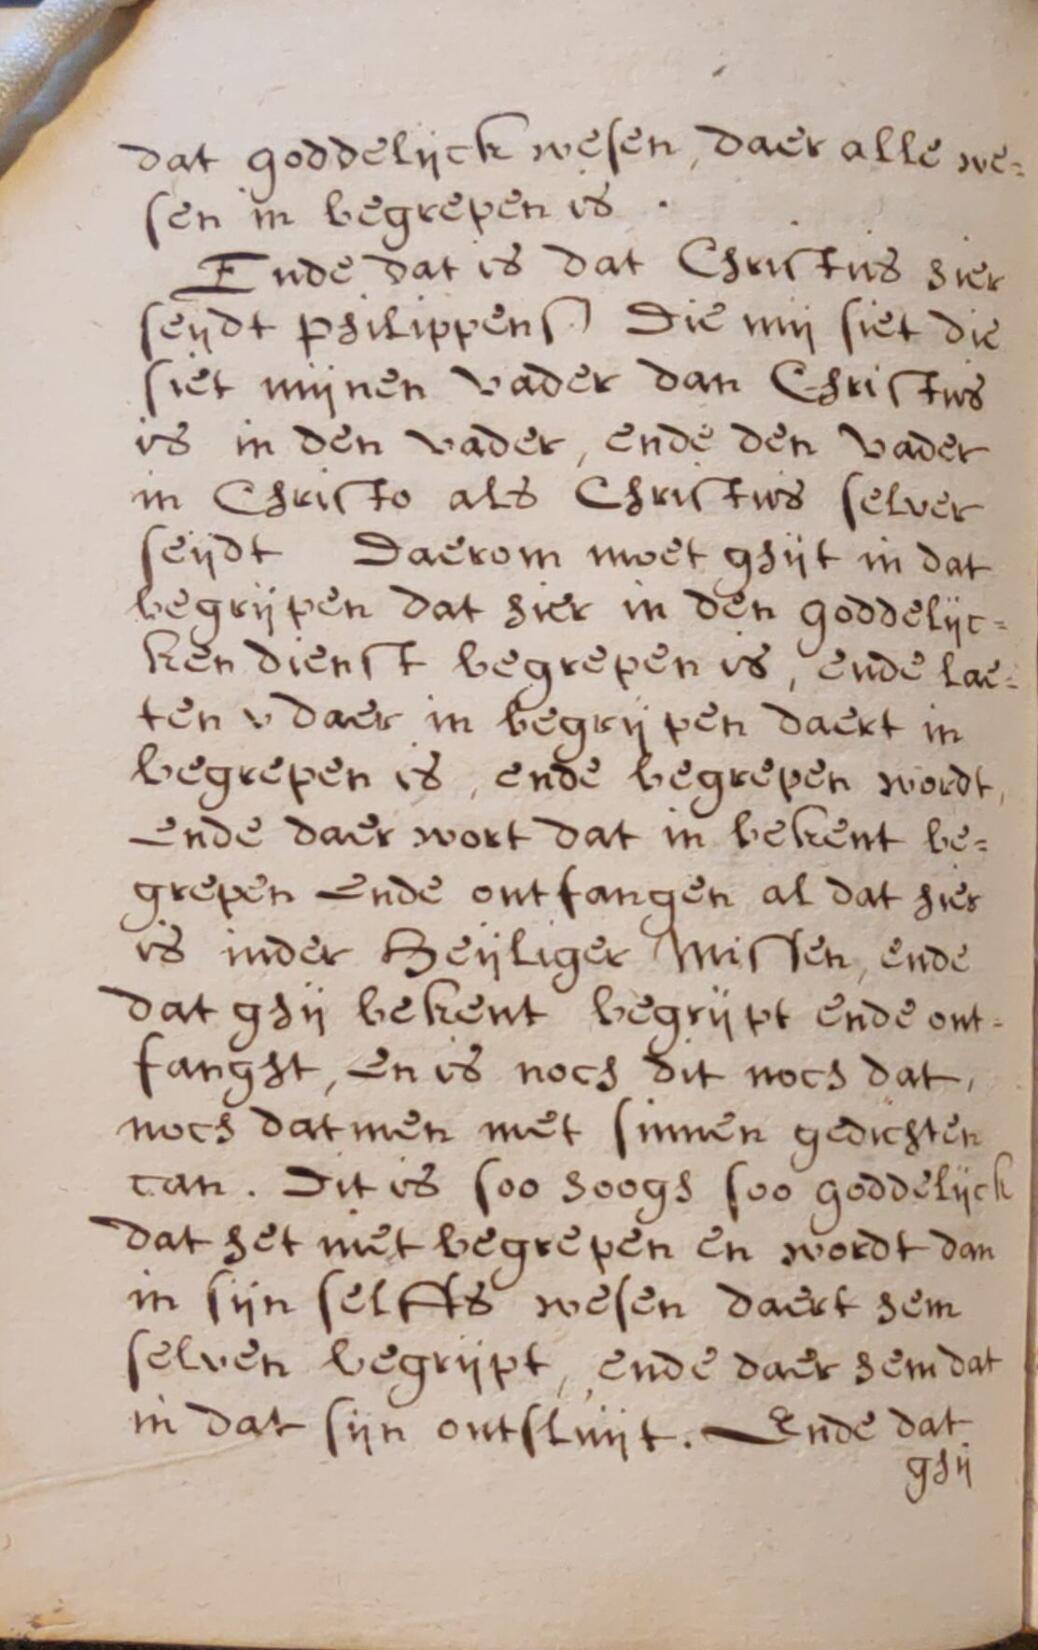 dat goddelijck wesen, daer alle we=
sen in begrepen is .
Ende dat is dat Christus hier
seijdt Die mij siet die
siet mijnen vader dan Christus
is in den vader, ende den vader
in Christo als Christus selver
seijdt Daerom moet ghijt in dat
begrijpen dat hier in den goddelijc=
ken dienst begrepen is, ende lae=
ten v daer in begrijpen daert in
begrepen is, ende begrepen wordt,
Ende daer wort dat in bekent be=
grepen Ende ontfangen al dat hier
is inder Heijliger Missen, ende
dat ghij bekent begrijpt ende ont=
fanght, En is noch dit noch dat,
noch datmen met sinnen gedichten
can. Dit is soo hoogh soo goddelijck
dat het niet begrepen en wordt dan
in sijn selffs wesen daert hem
selven begrijpt, ende daer hem dat
in dat sijn ontsluijt. Ende dat
ghij